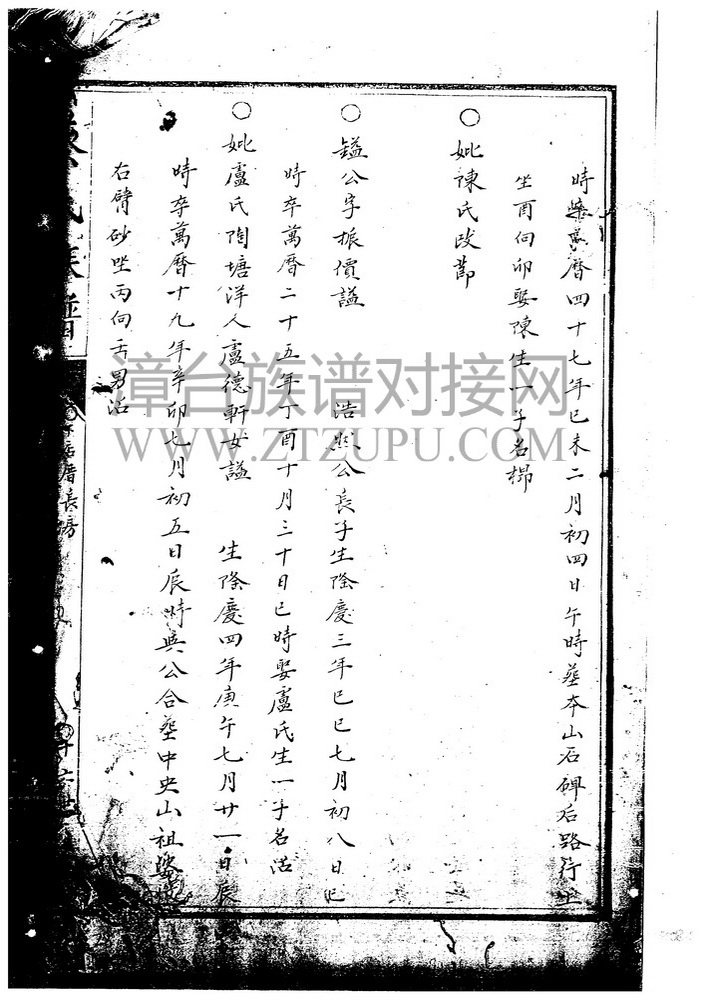 時葬萬曆四十七年己未二月初四日午時葬本山石碑后路行上
坐酉向卯娶陳生一子名榔
○妣陳氏改節
○鎰公字振價謚 浩然公長子生隆慶三年己巳七月初八日巳
時卒萬曆二十五年丁酉十月三十日巳時娶盧氏生一子名活
○妣盧氏陶塘洋人盧德軒女謚 生隆慶四年庚午七月廿一日辰
時卒萬曆十九年辛卯七月初五日辰時與公合葬中央山祖塋
右臂砂坐丙向壬男活
長房
漳台族谱对接网
WWW.ZTZUPU.COM